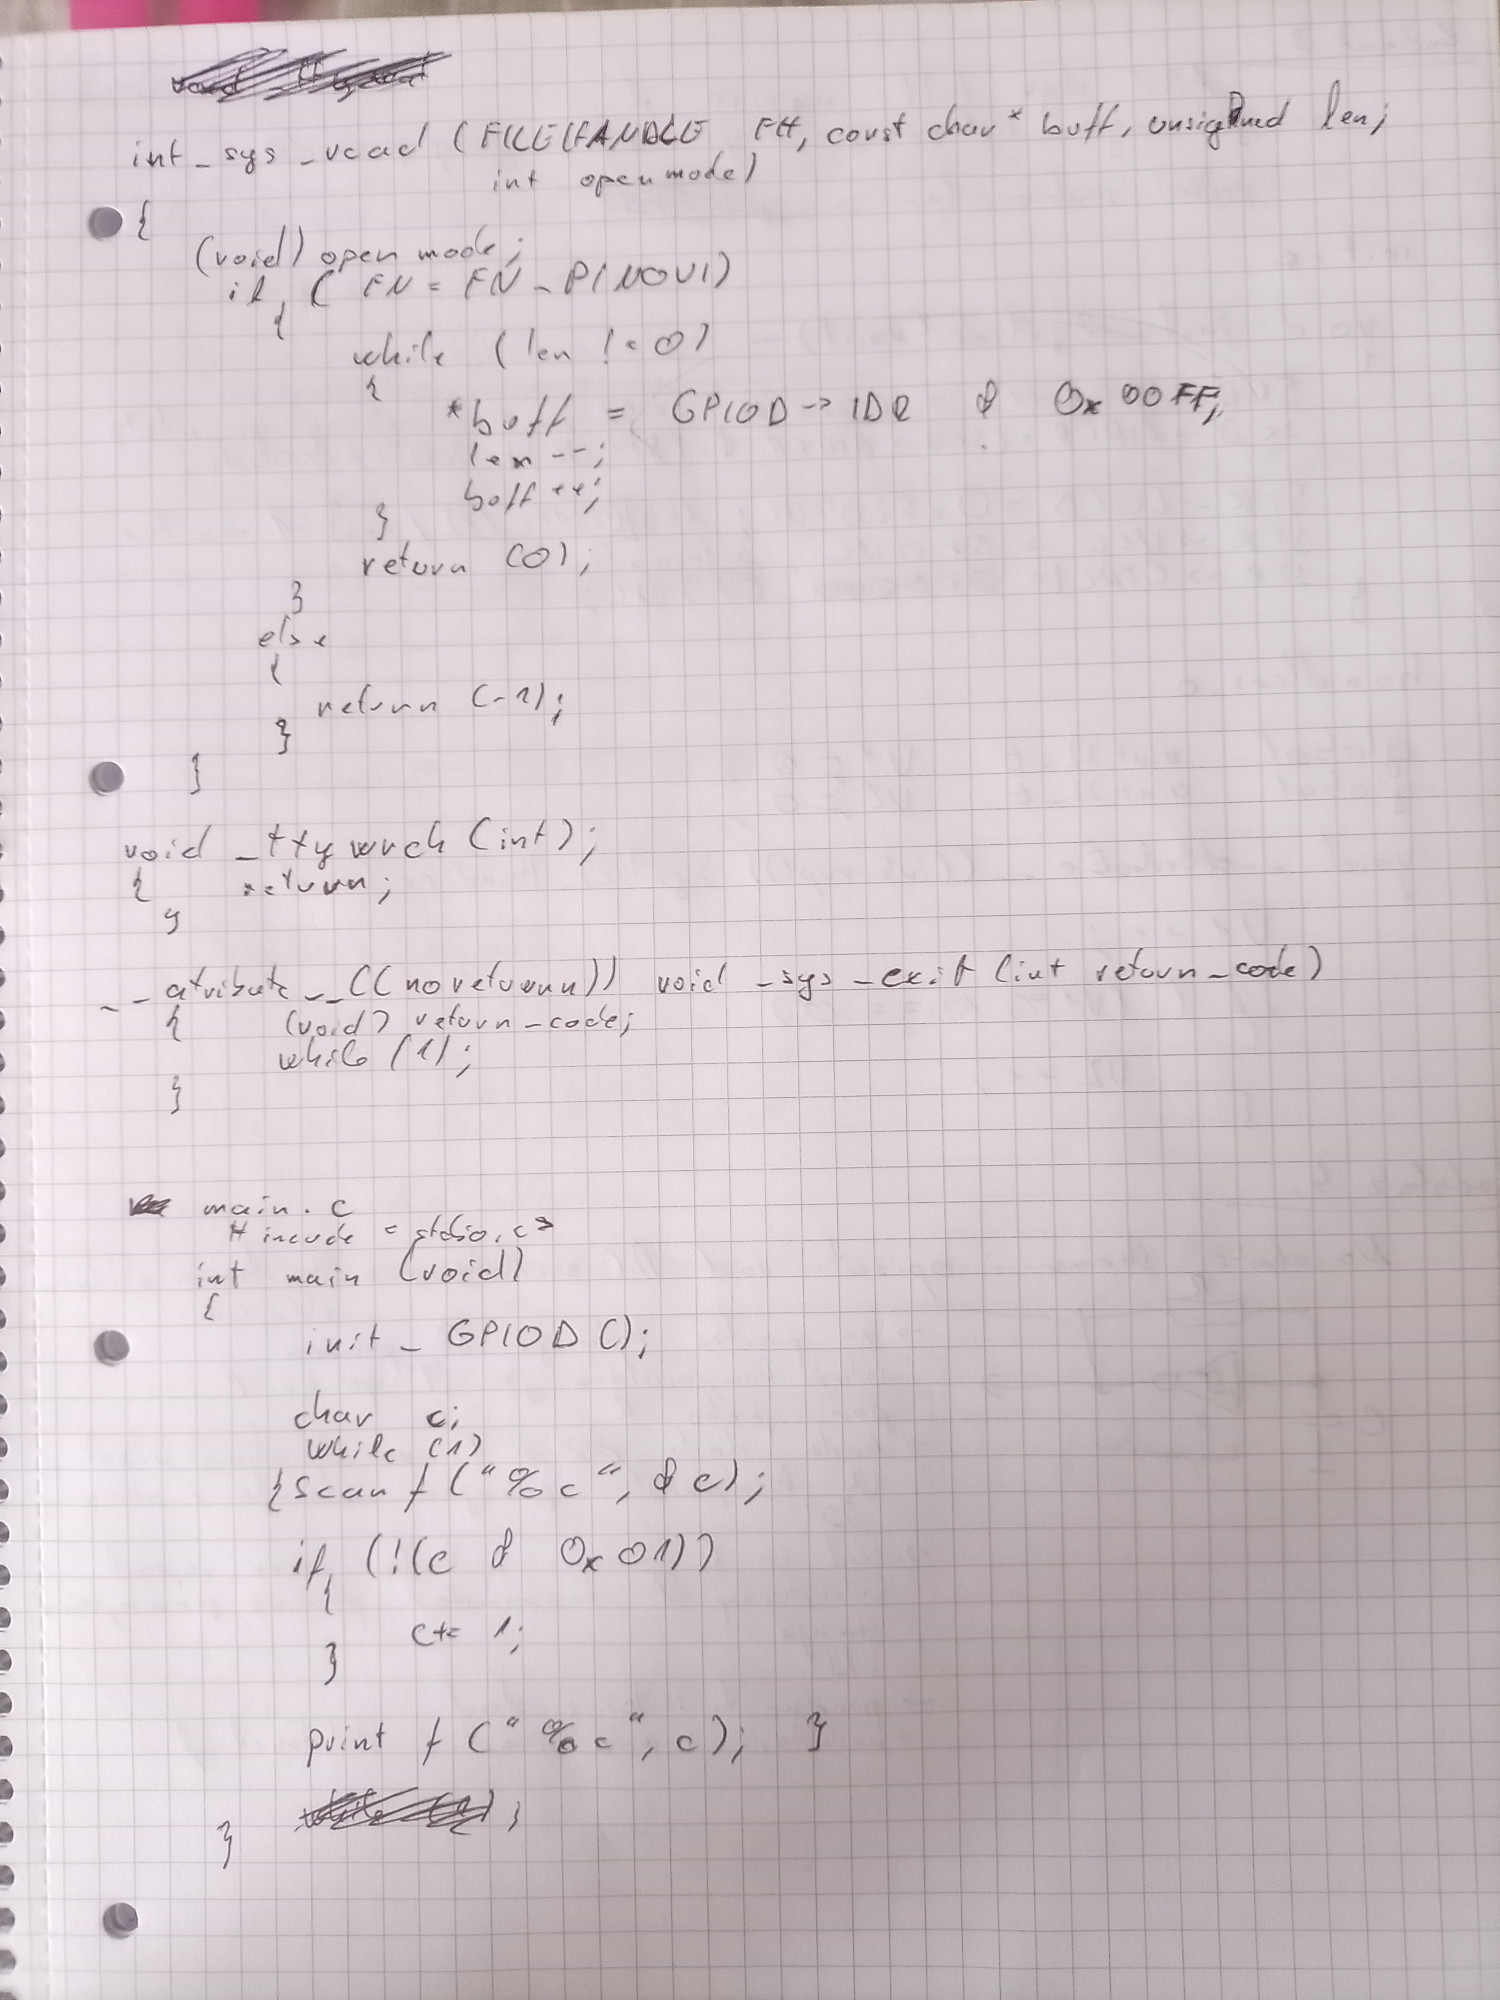 int _sys _read (FILEHANDLE FH, const char* buff, unsigned len;
int openmode)
{
(void) open mode;
if ( FN = FN _ PINOUI)
{
while (len != 0)
{
*buff = GPIOD -> IDR & 0x00FF;
len --;
buff ++;
}
return (0);
}
else
{
return (-1);
}
}
void _ttywrch (int);
{ return;
}
__atribute__((noreturn)) void _sys _exit (int return_code)
{ (void) return_code;
while (1);
}
main.c
# incude <stdio.c>
int main (void)
{
init_GPIOD ();
char c;
while (1)
{scanf ("%c", &c);
if (!(c & 0x01))
{
c+= 1;
}
printf ("%c", c); }
;
}